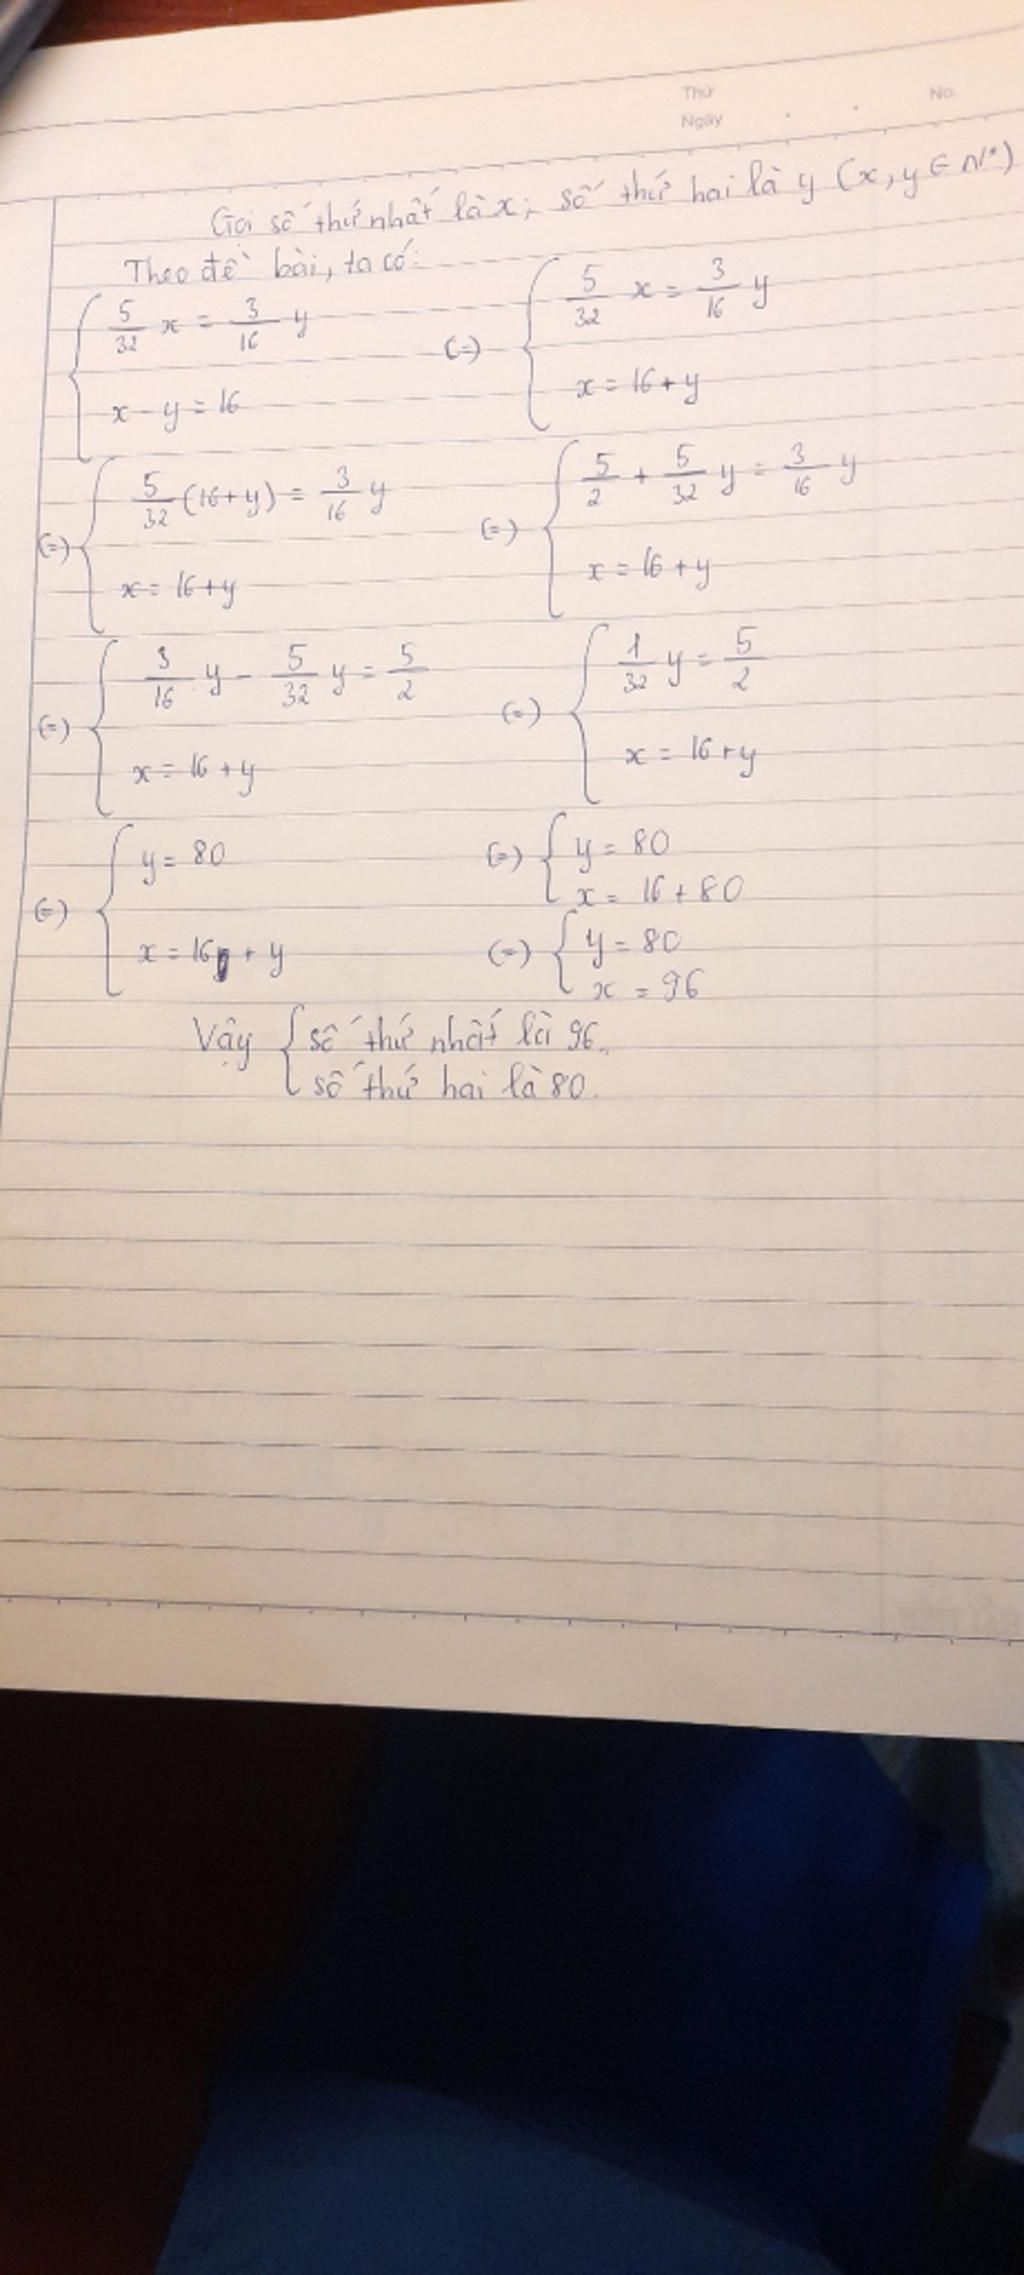 Thứ
Ngày
No.
Gọi số thứ nhất là x; số thứ hai là y (x, y ∈ N*)
Theo đề bài, ta có:
{ 5/32 x = 3/16 y (=) { 5/32 x = 3/16 y
x - y = 16 x = 16 + y
(=) { 5/32 (16+y) = 3/16 y (=) { 5/2 + 5/32 y = 3/16 y
x = 16 + y x = 16 + y
(=) { 3/16 y - 5/32 y = 5/2 (=) { 1/32 y = 5/2
x = 16 + y x = 16 + y
(=) { y = 80 (=) { y = 80
x = 16 + y x = 16 + 80
(=) { y = 80
x = 96
Vậy { số thứ nhất là 96.
số thứ hai là 80.